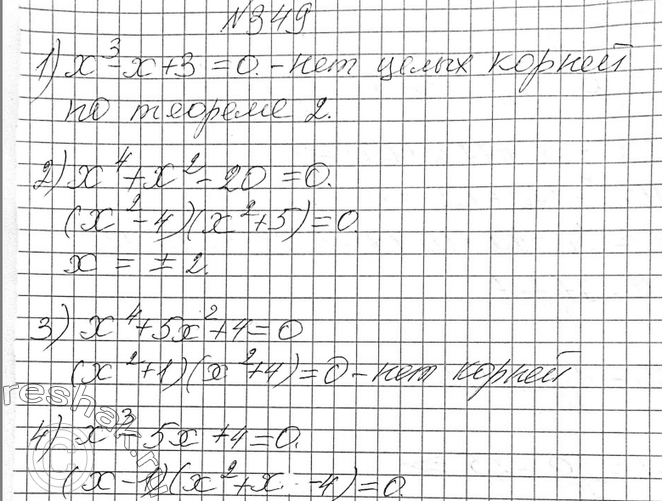 №349
1) x³-x+3=0. - нет целых корней
по теореме 2.
2) x⁴+x²-20=0.
(x²-4)(x²+5)=0
x=±2.
3) x⁴+5x²+4=0
(x²+1)(x²+4)=0 - нет корней
4) x³-5x+4=0.
(x-1)(x²+x-4)=0.
reshak.ru